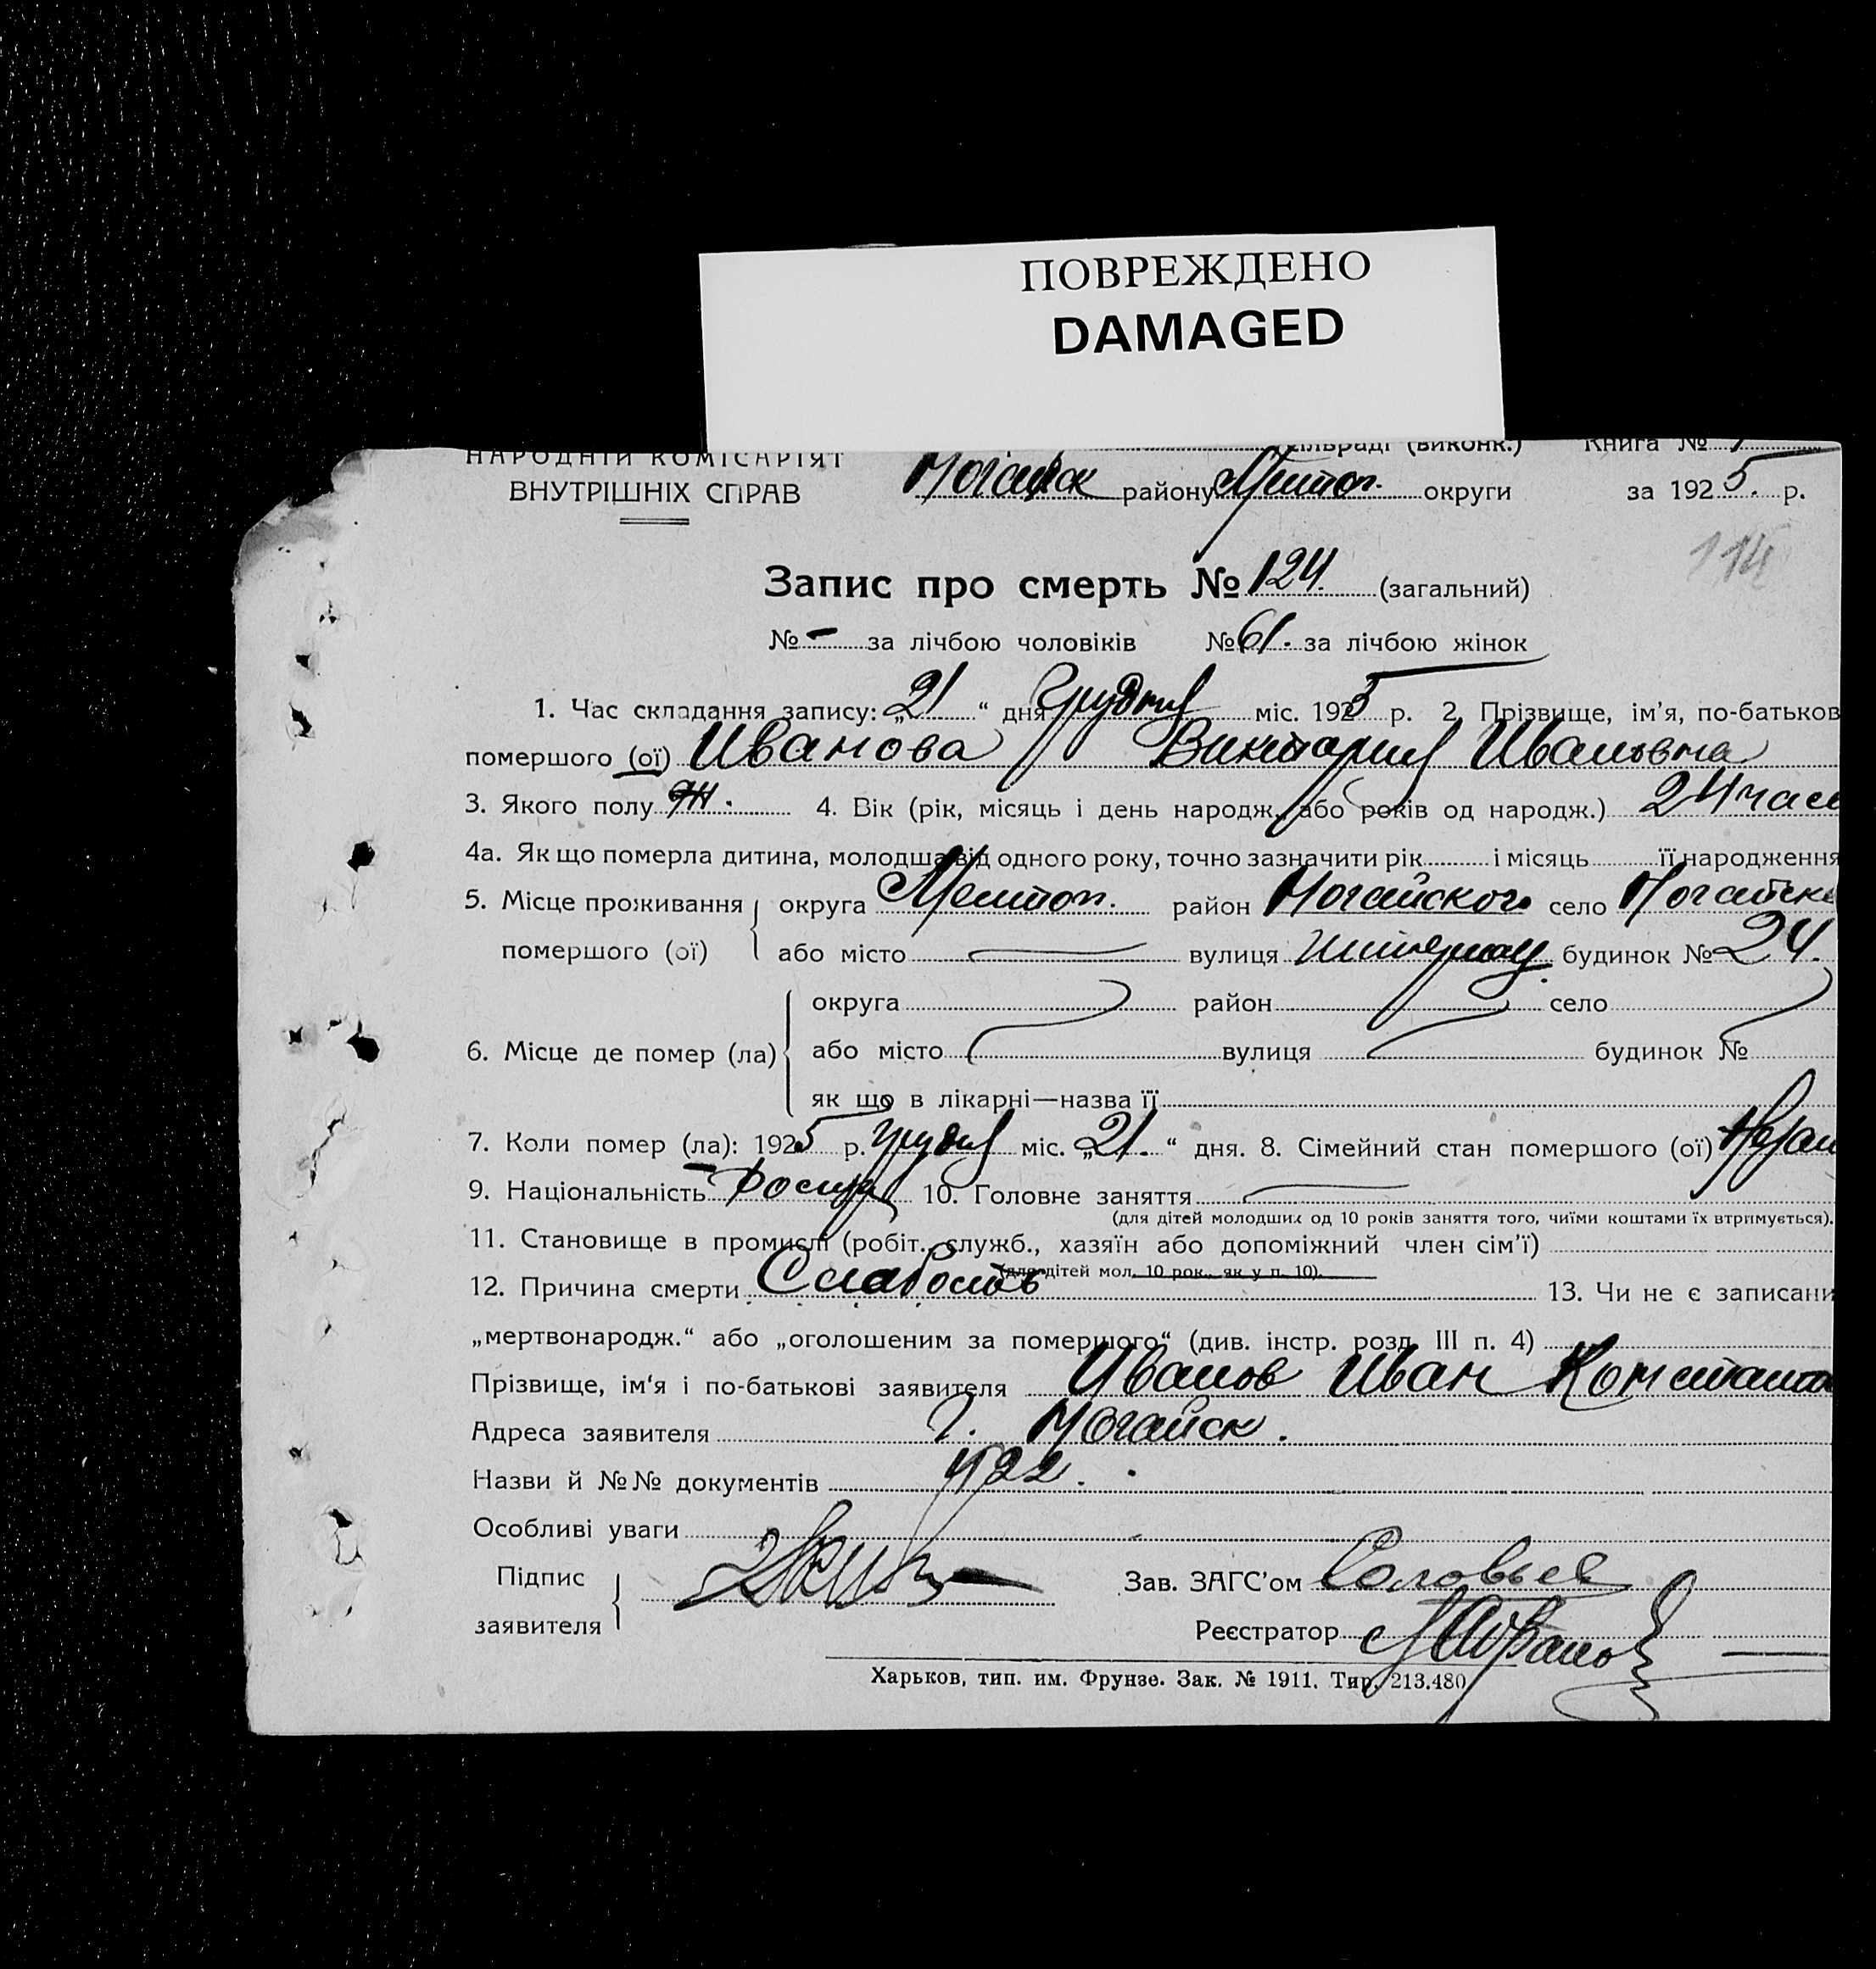 ПОВРЕЖДЕНО
DAMAGED
сільраді (виконк.) Книга №
НАРОДНІЙ КОМІСАРІЯТ
ВНУТРІШНІХ СПРАВ
Ногайск району Мелитоп. округи за 1925. р.
114
Запис про смерть № 124. (загальний)
№ - за лічбою чоловіків № 61. за лічбою жінок
1. Час складання запису: „21“ дня Грудня міс. 1925 р. 2. Прізвище, ім’я, по-батьков
помершого (ої) Иванова Виктория Ивановна
3. Якого полу Ж. 4. Вік (рік, місяць і день народж., або років од народж.) 24 час
4а. Як що померла дитина, молодша від одного року, точно зазначити рік і місяць її народження
5. Місце проживання помершого (ої) округа Мелитоп. район Ногайского село Ногайск
або місто вулиця будинок № 24.
6. Місце де помер (ла) округа район село
або місто вулиця будинок №
як що в лікарні—назва її
7. Коли помер (ла): 1925 р. грудня міс. „21.“ дня. 8. Сімейний стан помершого (ої)
9. Національність 10. Головне заняття
(для дітей молодших од 10 років заняття того, чиїми коштами їх втримується).
11. Становище в промислі (робіт., служб., хазяїн або допоміжний член сім’ї)
(для дітей мол. 10 рок., як у п. 10).
12. Причина смерти Слабость 13. Чи не є записани
„мертвонародж.“ або „оголошеним за помершого“ (див. інстр. розд. III п. 4)
Прізвище, ім‘я і по-батькові заявителя Иванов Иван Константи
Адреса заявителя г. Ногайск.
Назви й №№ документів 922.
Особливі уваги
Підпис заявителя Зав. ЗАГС’ом Соловьев
Реєстратор
Харьков, тип. им. Фрунзе. Зак. № 1911. Тир. 213.480